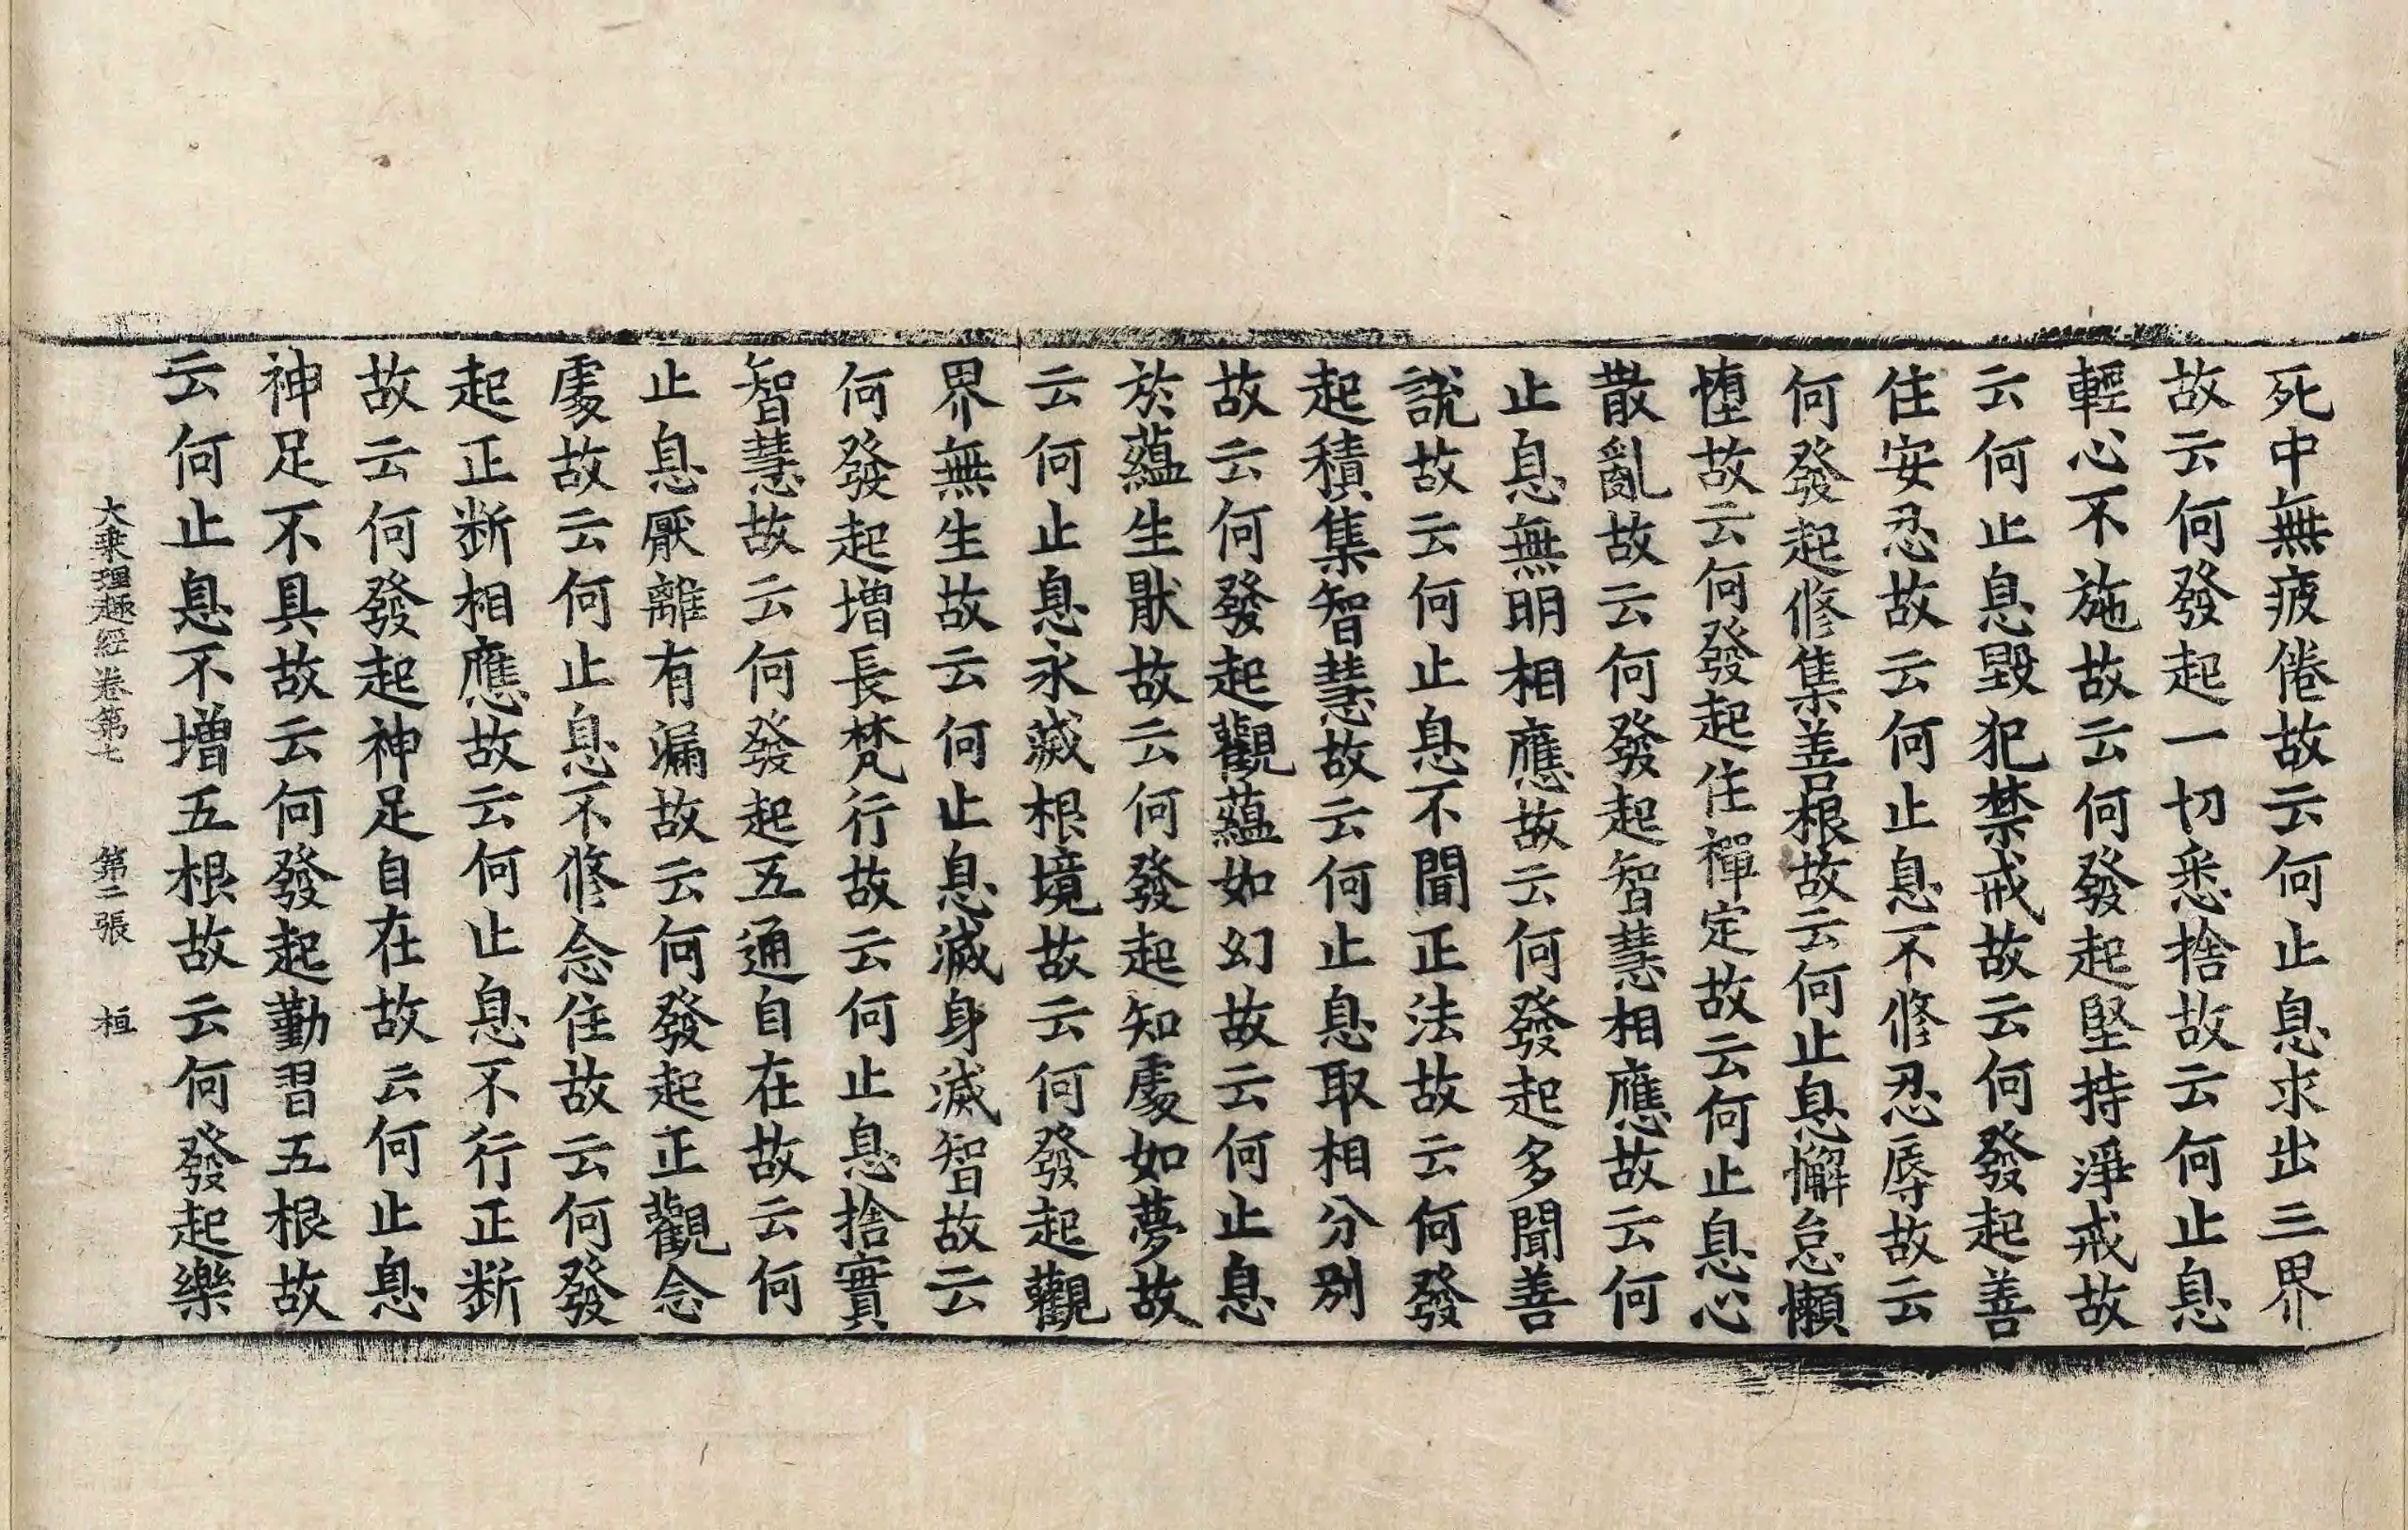 死中無疲倦故云何止息求出三界
故云何發起一切悉捨故云何止息
輕心不施故云何發起堅持淨戒故
云何止息毀犯禁戒故云何發起善
住安忍故云何止息不修忍辱故云
何發起修集善根故云何止息懈怠懶
墯故云何發起住禪定故云何止息心
散亂故云何發起智慧相應故云何
止息無明相應故云何發起多聞善
說故云何止息不聞正法故云何發
起積集智慧故云何止息取相分別
故云何發起觀蘊如幻故云何止息
於蘊生猒故云何發起知處如夢故
云何止息永滅根境故云何發起觀
界無生故云何止息滅身滅智故云
何發起增長梵行故云何止息捨實
智慧故云何發起五通自在故云何
止息厭離有漏故云何發起正觀念
處故云何止息不修念住故云何發
起正断相應故云何止息不行正断
故云何發起神足自在故云何止息
神足不具故云何發起勤習五根故
云何止息不增五根故云何發起樂
大乘理趣經卷第七　第二張　桓